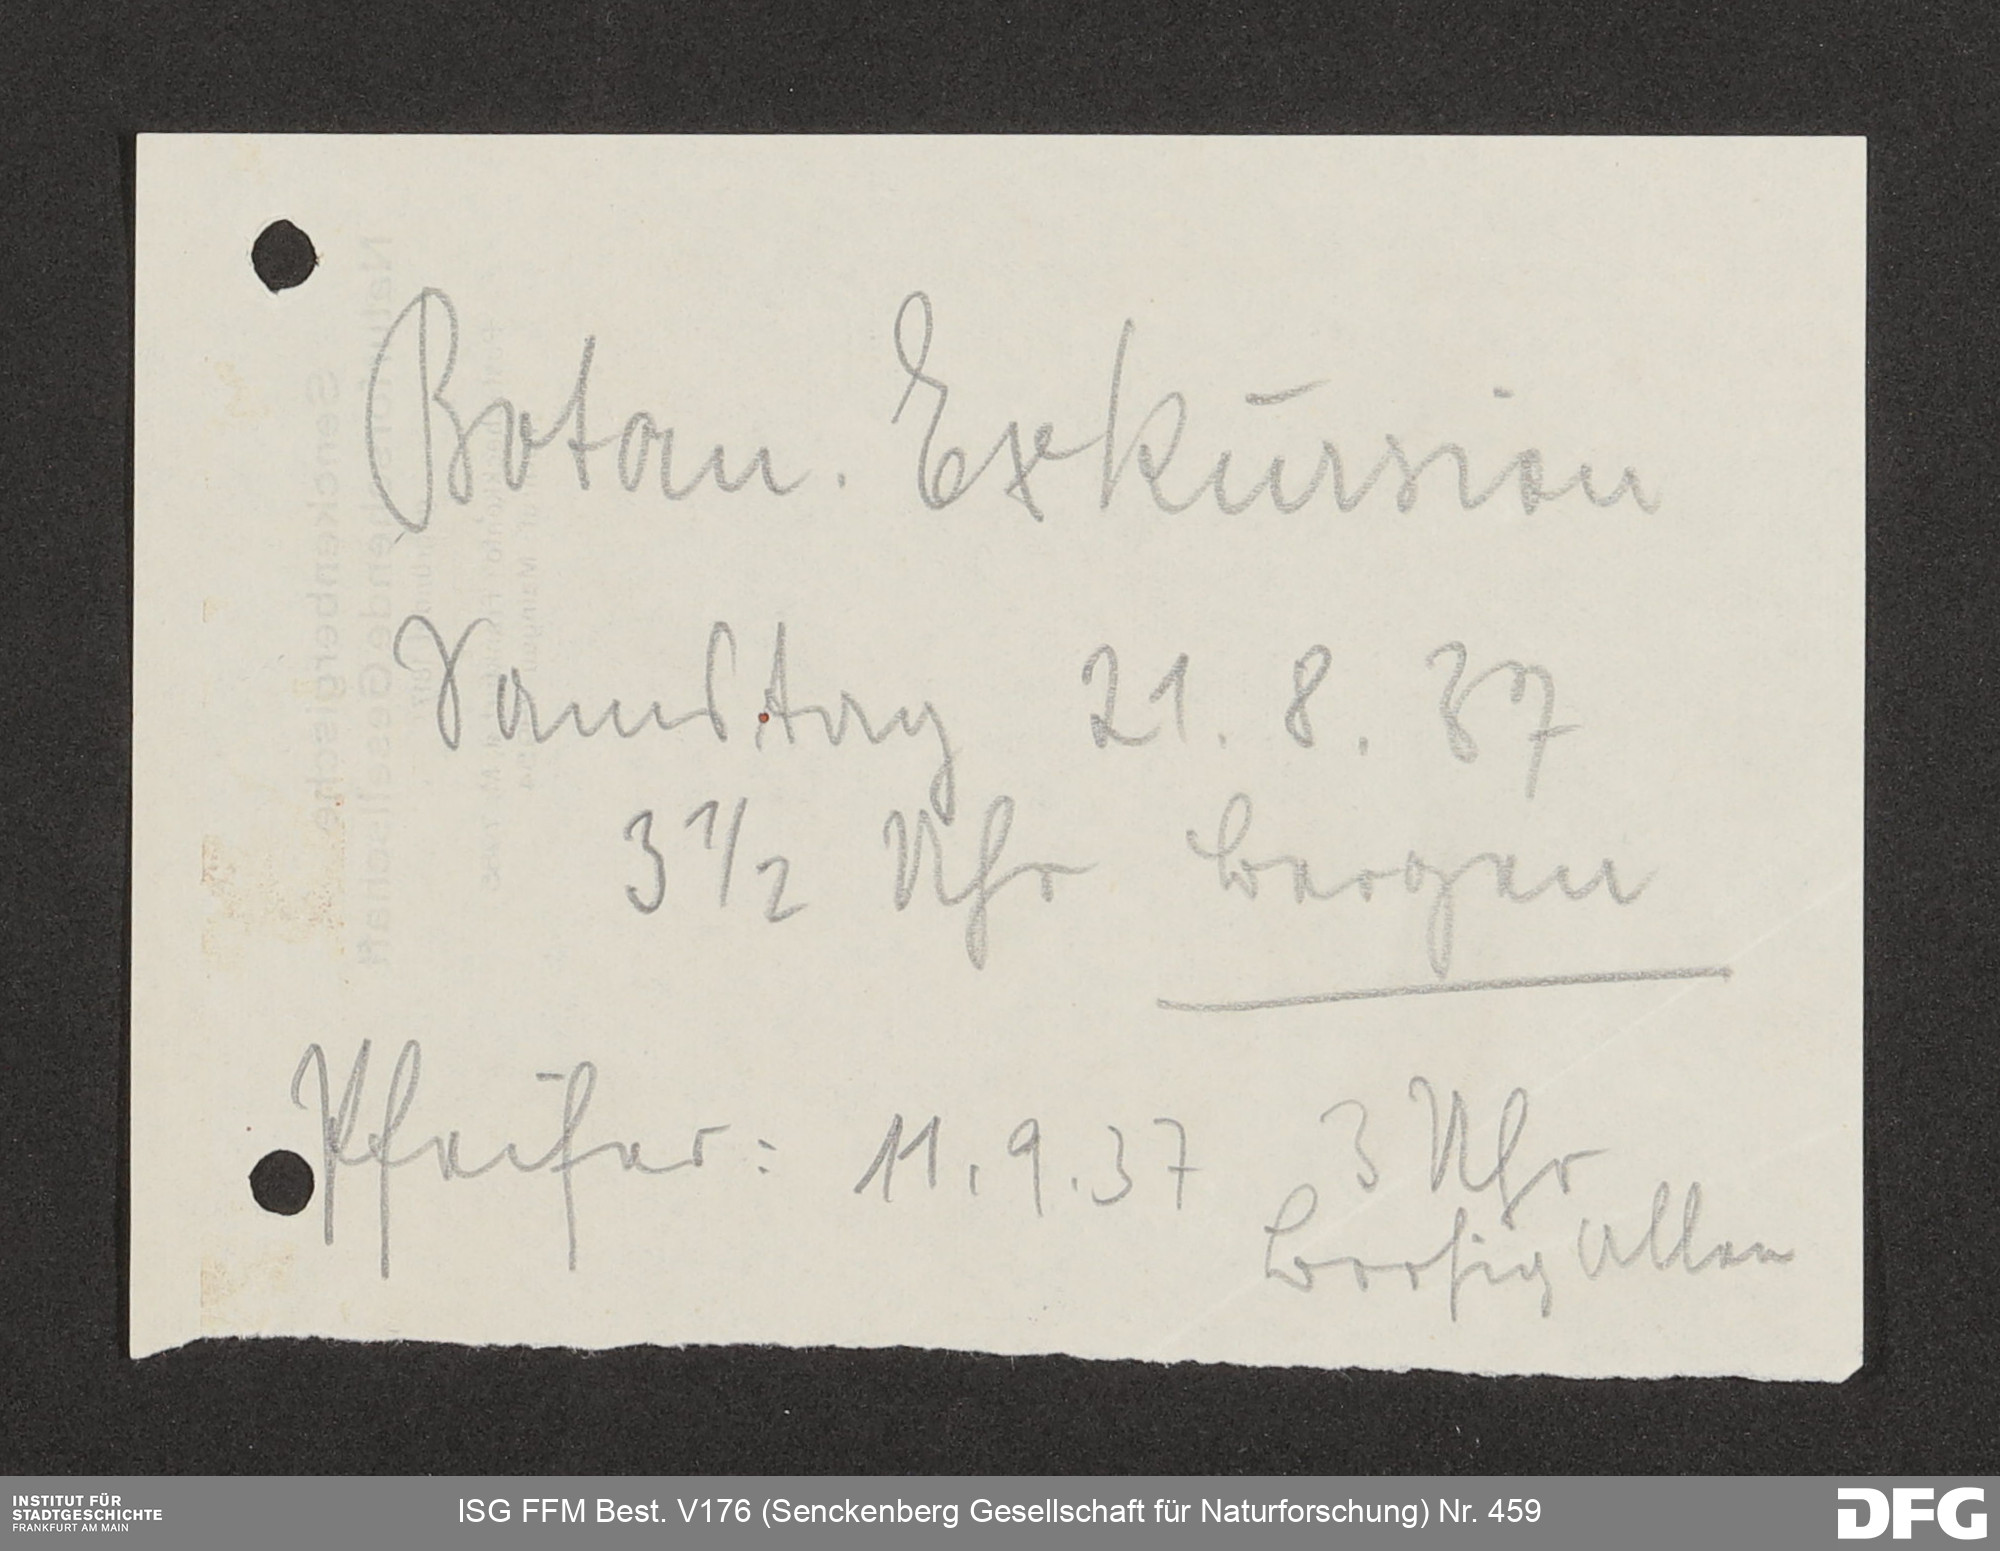 Botan. Exkursion
Samstag 21. 8. 37
3 1/2 Uhr Bergen
Pfeifer: 11. 9. 37 3 Uhr
Borsig Allee
Senckenbergische
Naturforschende Gesellschaft
INSTITUT FÜR
STADTGESCHICHTE
FRANKFURT AM MAIN
ISG FFM Best. V176 (Senckenberg Gesellschaft für Naturforschung) Nr. 459
DFG